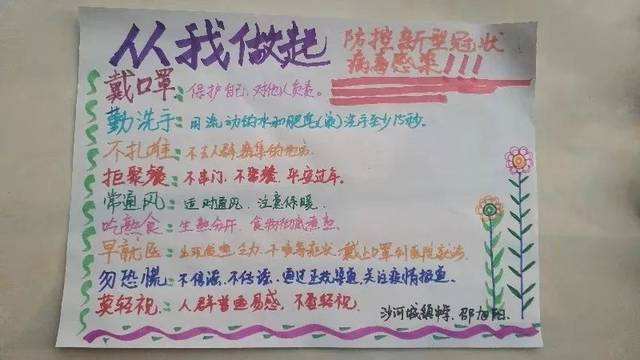 从我做起
防控新型冠状
病毒感染!!!
戴口罩：保护自己，对他人负责。
勤洗手：用流动的水和肥皂(液)洗手至少15秒。
不扎堆：不去人群密集的地方
拒聚餐：不串门，不聚餐，平安过年。
常通风：适时通风，注意保暖。
吃熟食：生熟分开，食物彻底煮熟。
早就医：出现发热、乏力、干咳等症状，戴上口罩到医院就诊。
勿恐慌：不信谣，不传谣，通过正规渠道，关注疫情报道。
莫轻视：人群普遍易感，不要轻视。
沙河城镇中学，邵旭阳